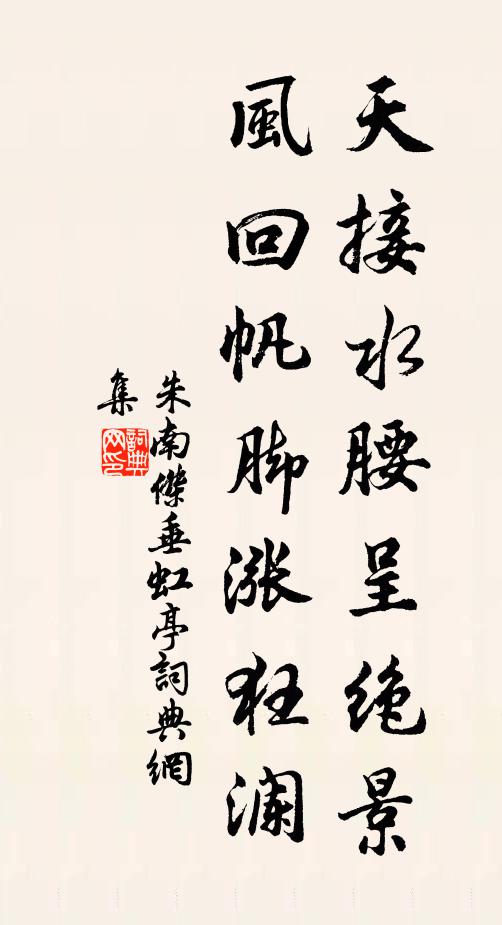 天接水腰呈绝景
風回帆脚漲狂澜
朱南傑垂虹亭詞典網
集
詞典网印